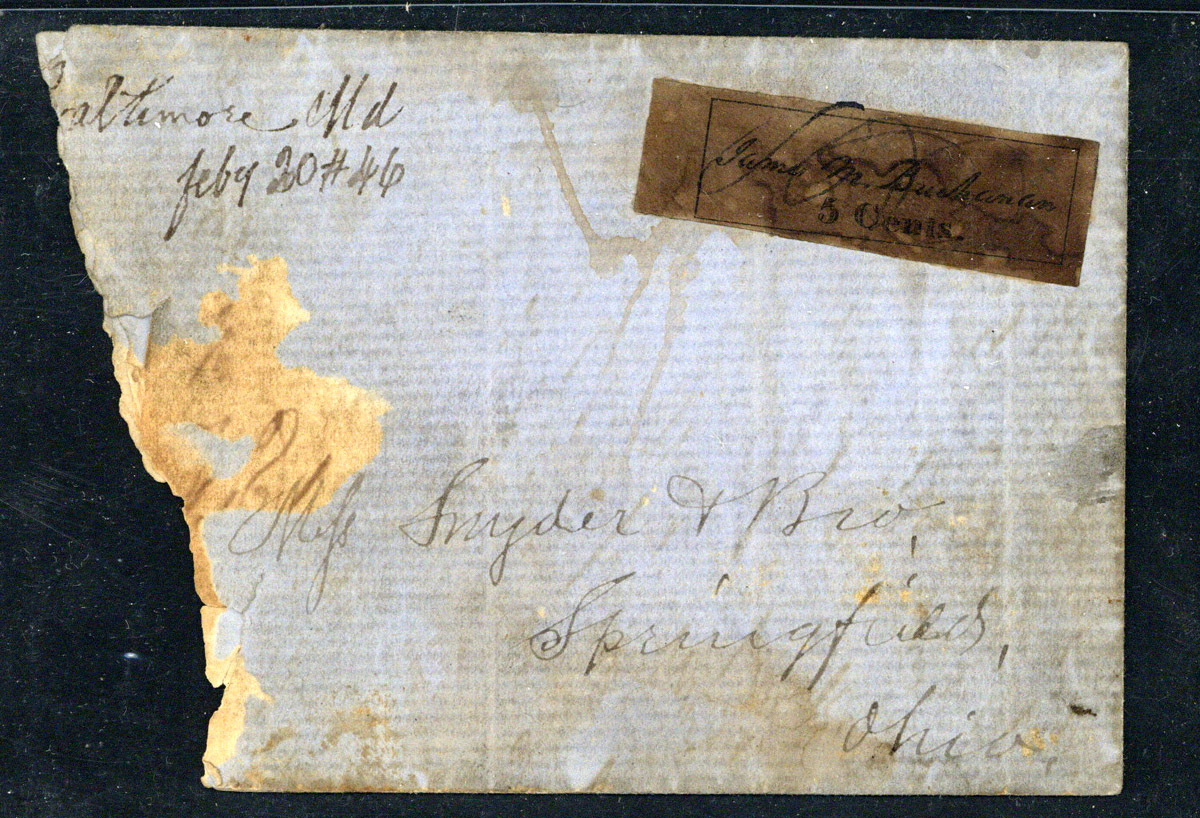 Baltimore Md
feby 20 # 46
James M. Buchanan
5 Cents.
Mess Snyder & Bro,
Springfield,
Ohio,